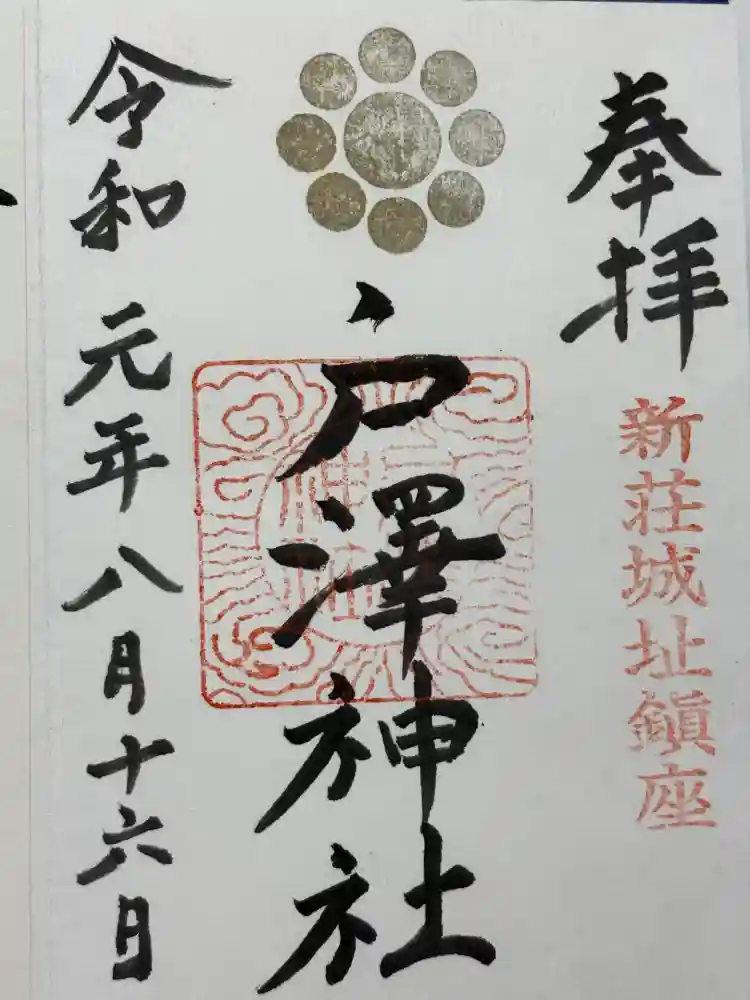 奉拝
新荘城址鎮座
戸澤神社
令和元年八月十六日